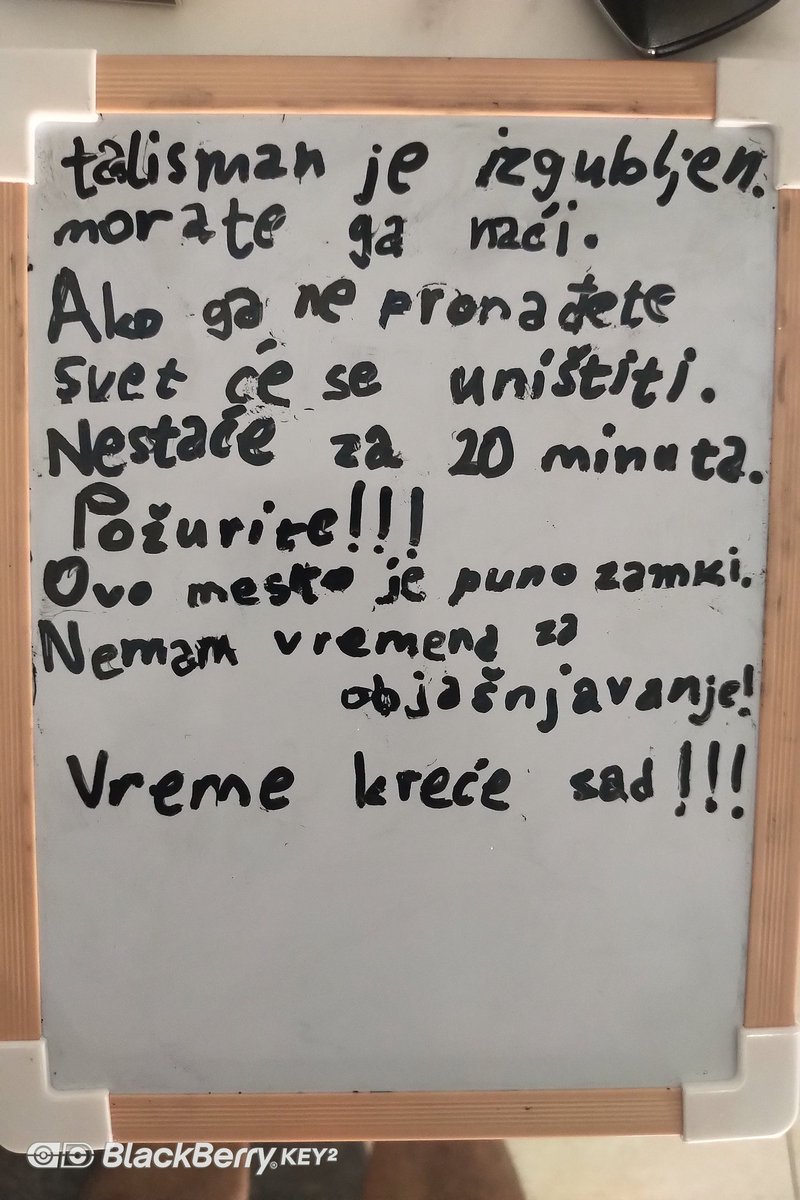 talisman je izgubljen.
morate ga naći.
Ako ga ne pronađete
svet će se uništiti.
Nestaće za 20 minuta.
Požurite!!!
Ovo mesto je puno zamki.
Nemam vremena za
objašnjavanje!
Vreme kreće sad!!!
BlackBerry® KEY²